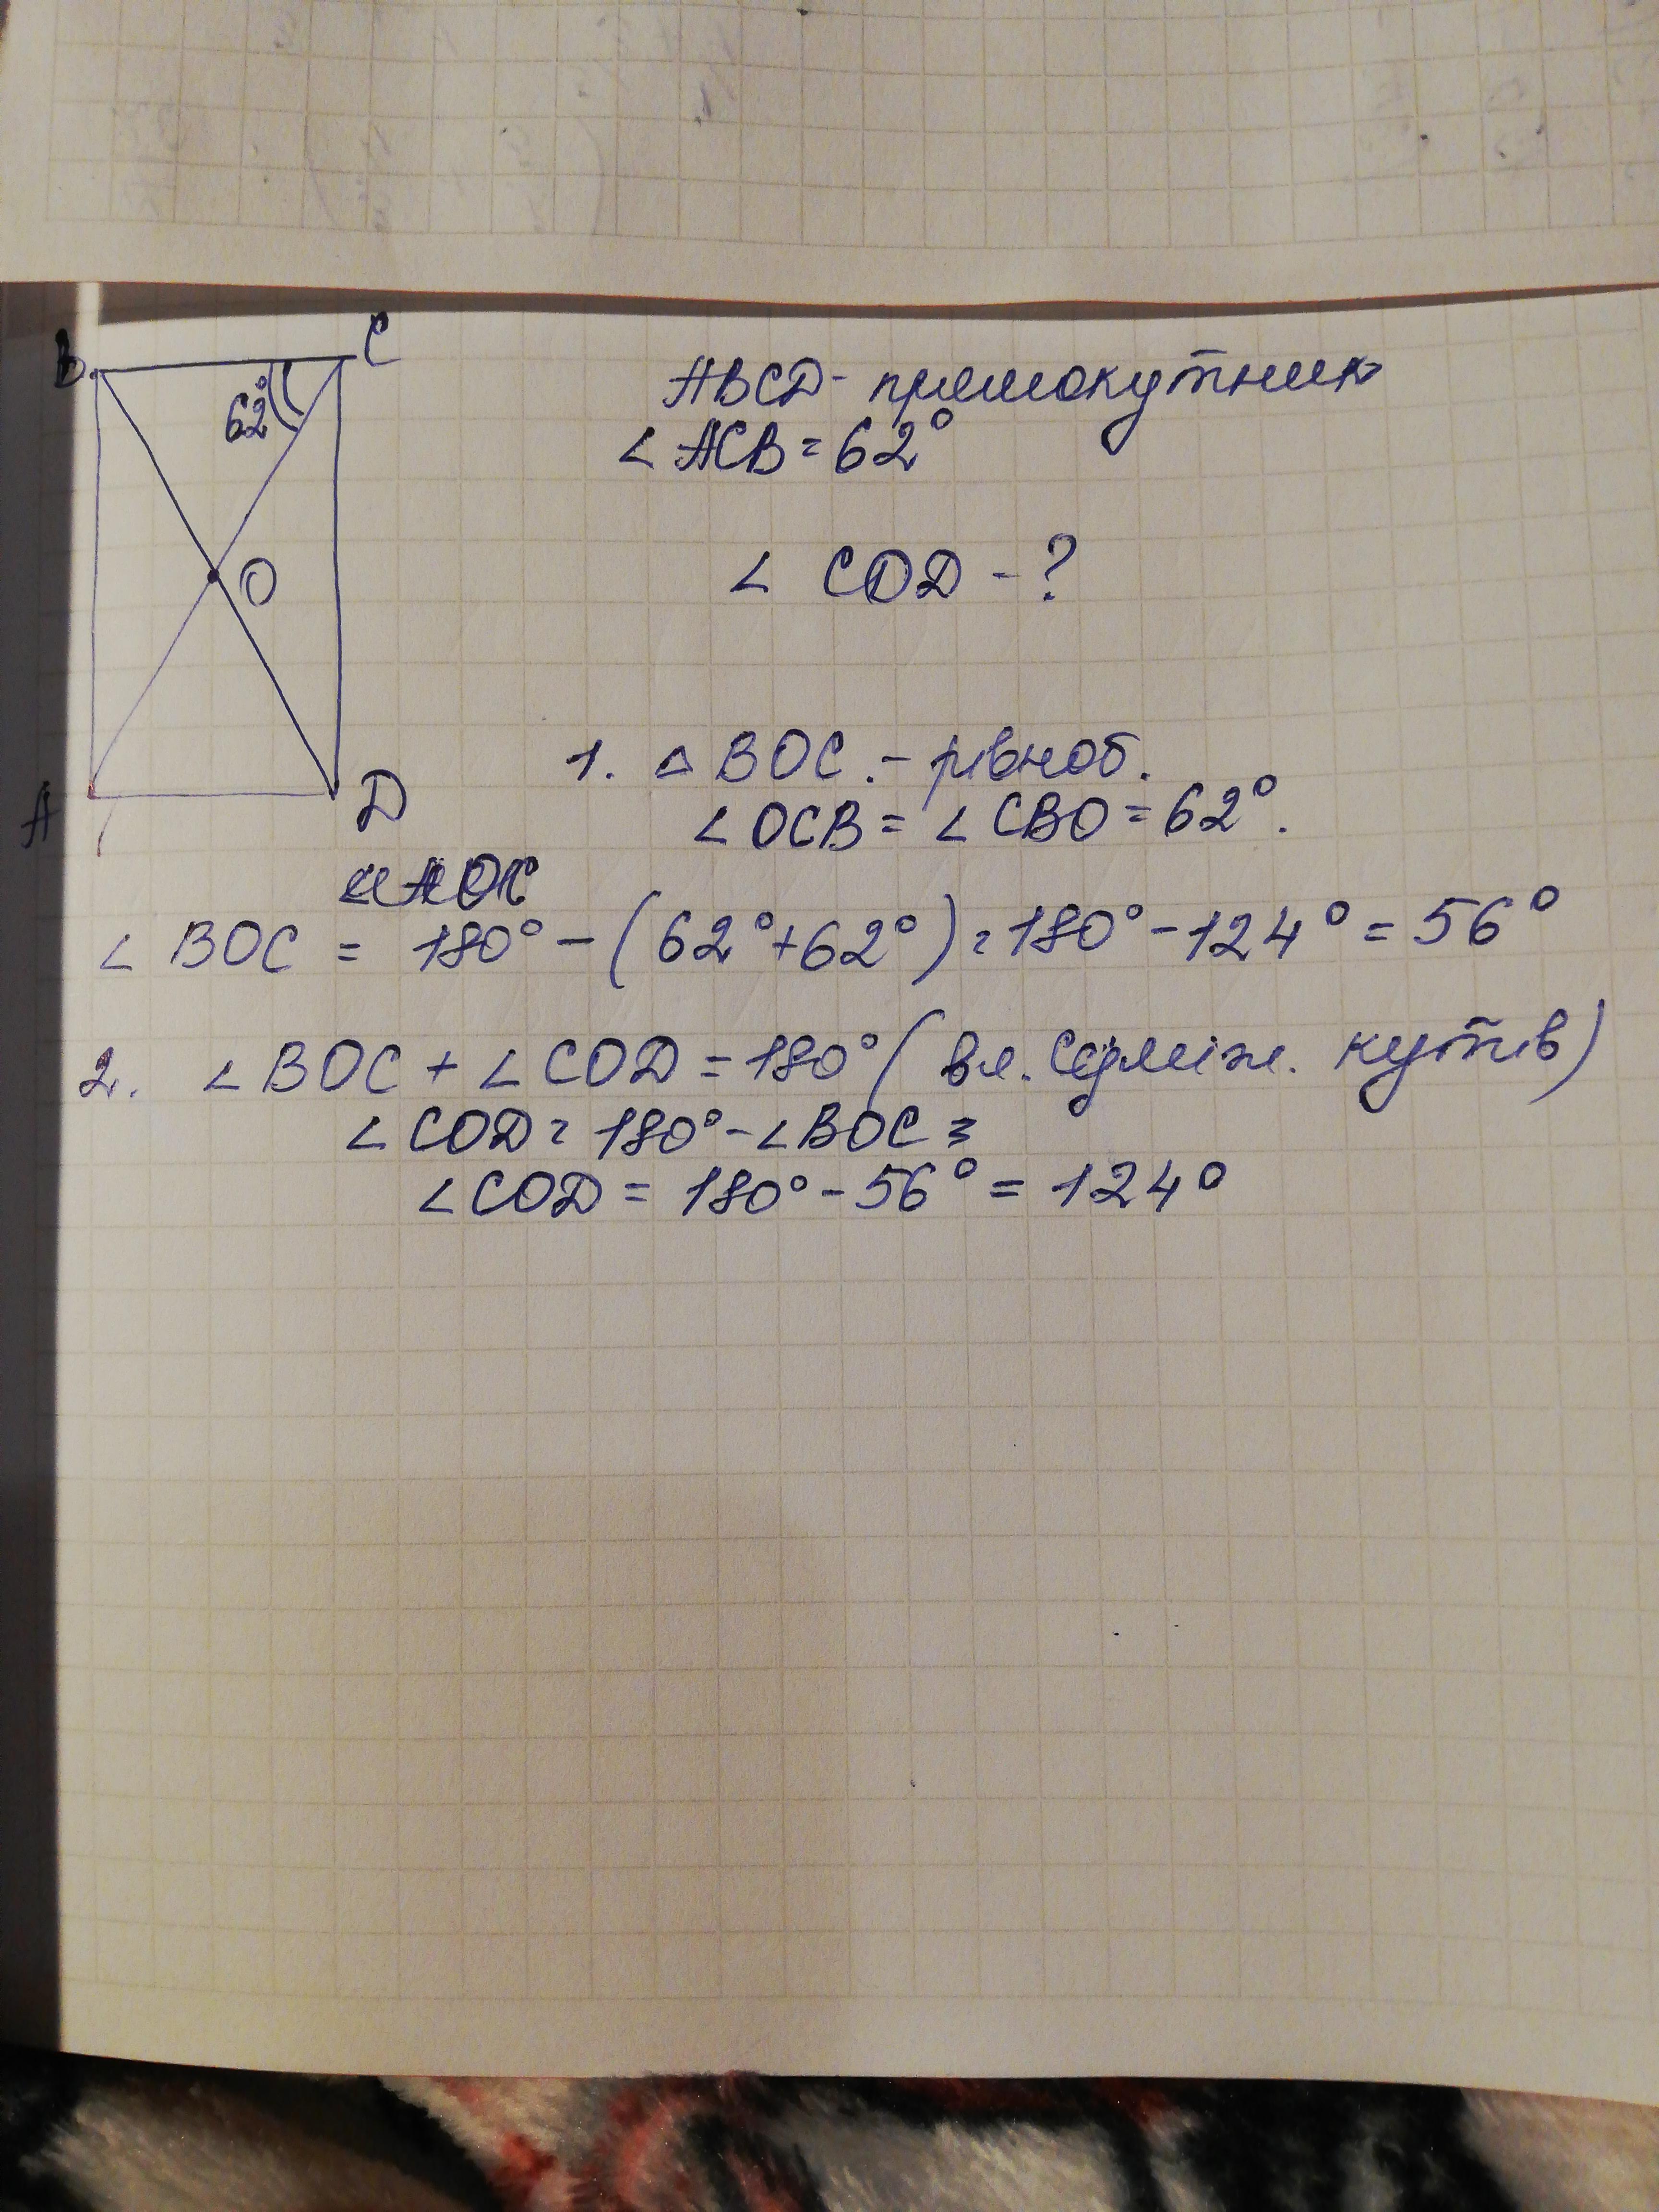 B
C
62°
O
A
D
ABCD - прямокутник
∠ ACB = 62°
∠ COD - ?
1. △ BOC. - рівноб.
∠ OCB = ∠ CBO = 62°.
∠ BOC = 180° - (62° + 62°) = 180° - 124° = 56°
2. ∠ BOC + ∠ COD = 180° (вл. суміж. кутів)
∠ COD = 180° - ∠ BOC =
∠ COD = 180° - 56° = 124°